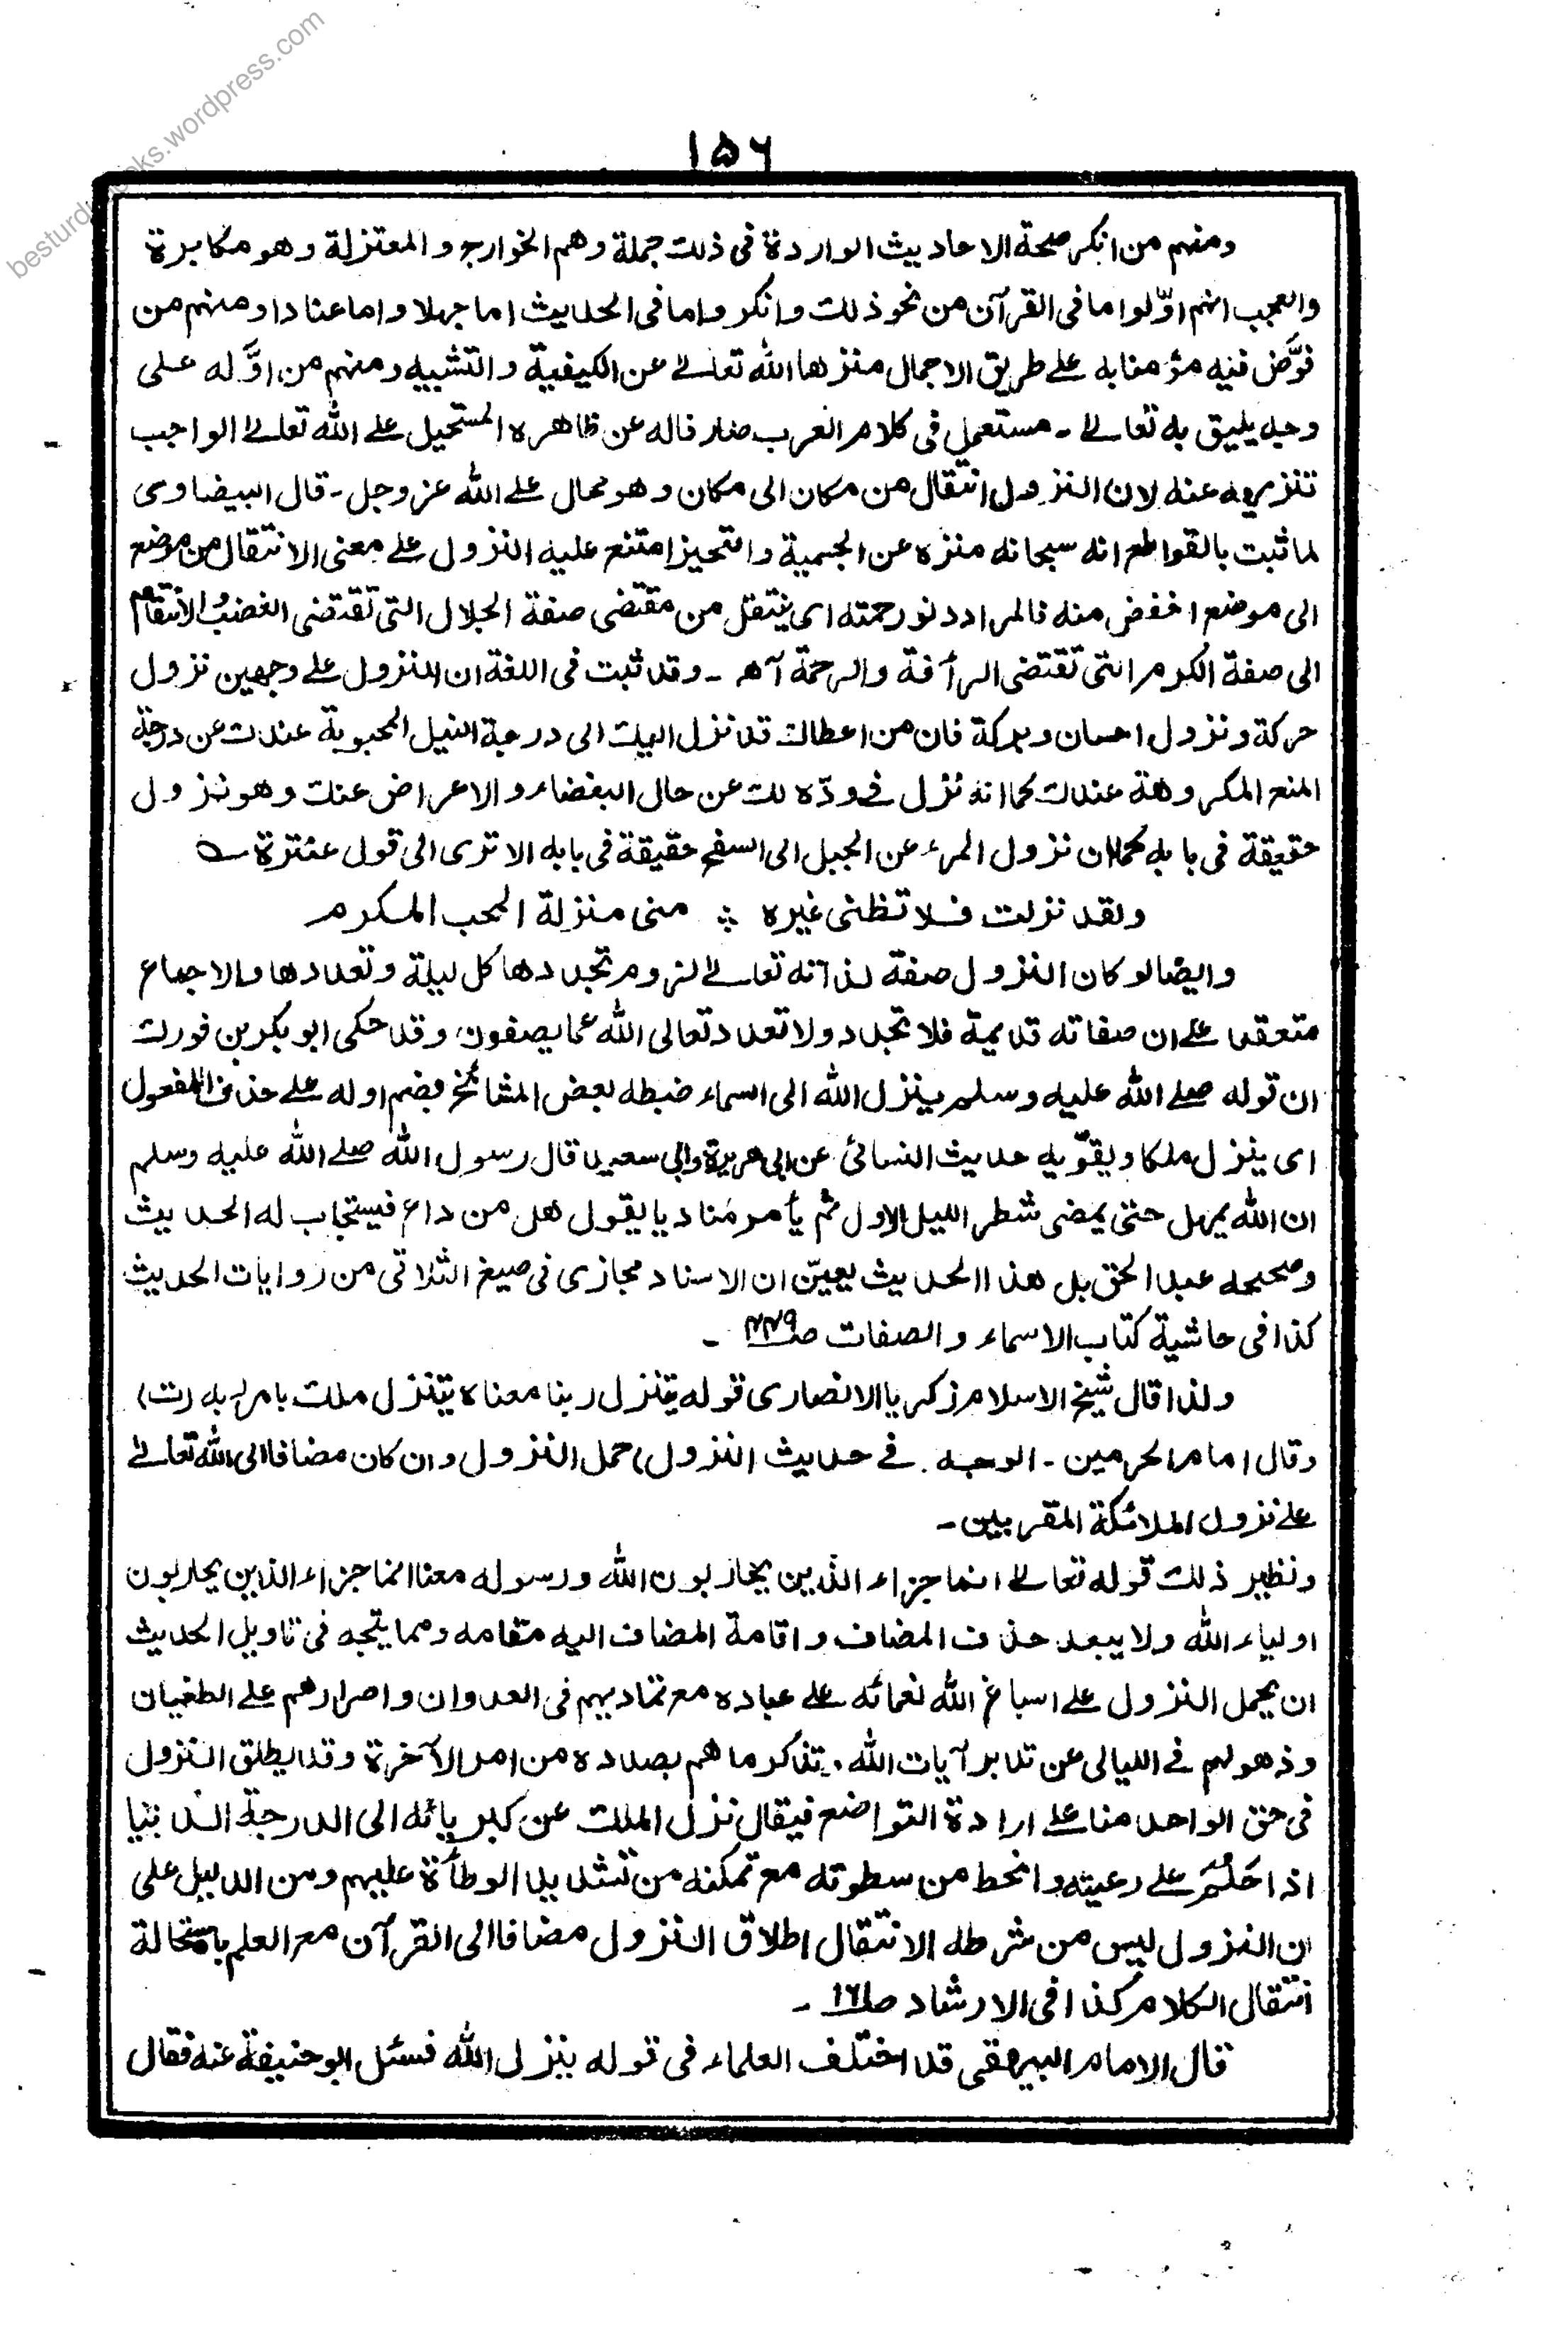 besturdubooks.wordpress.com
١٥٦
ومنهم من انكر صحة الاحاديث الواردة فى ذلك جملة وهم الخوارج والمعتزلة وهو مكابرة
والعجب انهم اوّلوا ما فى القرآن من نحو ذلك وانكروا ما فى الحديث اما جهلا واما عنادا ومنهم من
فوَّض فيه مؤمنا به على طريق الاجمال منزها الله تعالى عن الكيفية والتشبيه ومنهم من اوَّله على
وجه يليق به تعالى ـ مستعمل فى كلام العرب صارفا له عن ظاهره المستحيل على الله تعالى الواجب
تنزيهه عنه لان النزول انتقال من مكان الى مكان وهو محال على الله عز وجل ـ قال البيضاوى
لما ثبت بالقواطع انه سبحانه منزه عن الجسمية والتحيز امتنع عليه النزول على معنى الانتقال من موضع
الى موضع اخفض منه فالمراد دنو رحمته اى ينتقل من مقتضى صفة الجلال التى تقتضى الغضب والانتقام
الى صفة الكرم التى تقتضى الرأفة والرحمة آھ ـ وقد ثبت فى اللغة ان النزول على وجهين نزول
حركة ونزول احسان وبركة فان من اعطاك قد نزل اليك الى درجة النيل المحبوبة عندك عن درجة
المنع المكروهة عندك كما انه نزل فى ودّه لك عن حال البغضاء والاعراض عنك وهو نزول
حقيقة فى بابه كما ان نزول المرء عن الجبل الى السفح حقيقة فى بابه الا ترى الى قول عنترة ؎
ولقد نزلت فلا تظنى غيره ؞ منى منزلة المحب المكرم
وايضا لو كان النزول صفة لذاته تعالى لزم تجددها كل ليلة وتعددها والاجماع
منعقد على ان صفاته قديمة فلا تجدد ولا تعدد تعالى الله عما يصفون وقد حكى ابو بكر بن فورك
ان قوله صلى الله عليه وسلم ينزل الله الى السماء ضبطه بعض المشائخ بضم اوله على حذف المفعول
اى ينزل ملكا ويقوّيه حديث النسائى عن ابى هريرة وابى سعيد قال رسول الله صلى الله عليه وسلم
ان الله يمهل حتى يمضى شطر الليل الاول ثم يأمر مُناديا يقول هل من داع فيستجاب له الحديث
وصححه عبد الحق بل هذا الحديث يعيّن ان الاسناد مجازى فى صيغ الثلاثى من روايات الحديث
كذا فى حاشية كتاب الاسماء والصفات صـ٤٤٩ ـ
ولذا قال شيخ الاسلام زكريا الانصارى قوله يتنزل ربنا معناه يتنزل ملك بامر ربه (ت)
وقال امام الحرمين ـ الوجه فى حديث النزول) حمل النزول وان كان مضافا الى الله تعالى
على نزول الملائكة المقربين ـ
ونظير ذلك قوله تعالى انما جزاء الذين يحاربون الله ورسوله معنا انما جزاء الذين يحاربون
اولياء الله ولا يبعد حذف المضاف واقامة المضاف اليه مقامه ومما يتجه فى تاويل الحديث
ان يحمل النزول على اسباغ الله نعمائه على عباده مع تماديهم فى العدوان واصرارهم على الطغيان
وذهولهم فى الليالى عن تدبر آيات الله. تذكر ما هم بصدده من امر الآخرة وقد يطلق النزول
فى حق الواحد منا على ارادة التواضع فيقال نزل الملك عن كبريائه الى الدرجة الدنيا
اذا حَلُمَ على رعيته وانحط من سطوته مع تمكنه من تشديد الوطأة عليهم ومن الدليل على
ان النزول ليس من شرطه الانتقال اطلاق النزول مضافا الى القرآن مع العلم باستحالة
انتقال الكلام كذا فى الارشاد صـ١٦١ ـ
قال الامام البيهقى قد اختلف العلماء فى قوله ينزل الله فسئل ابو حنيفة عنه فقال